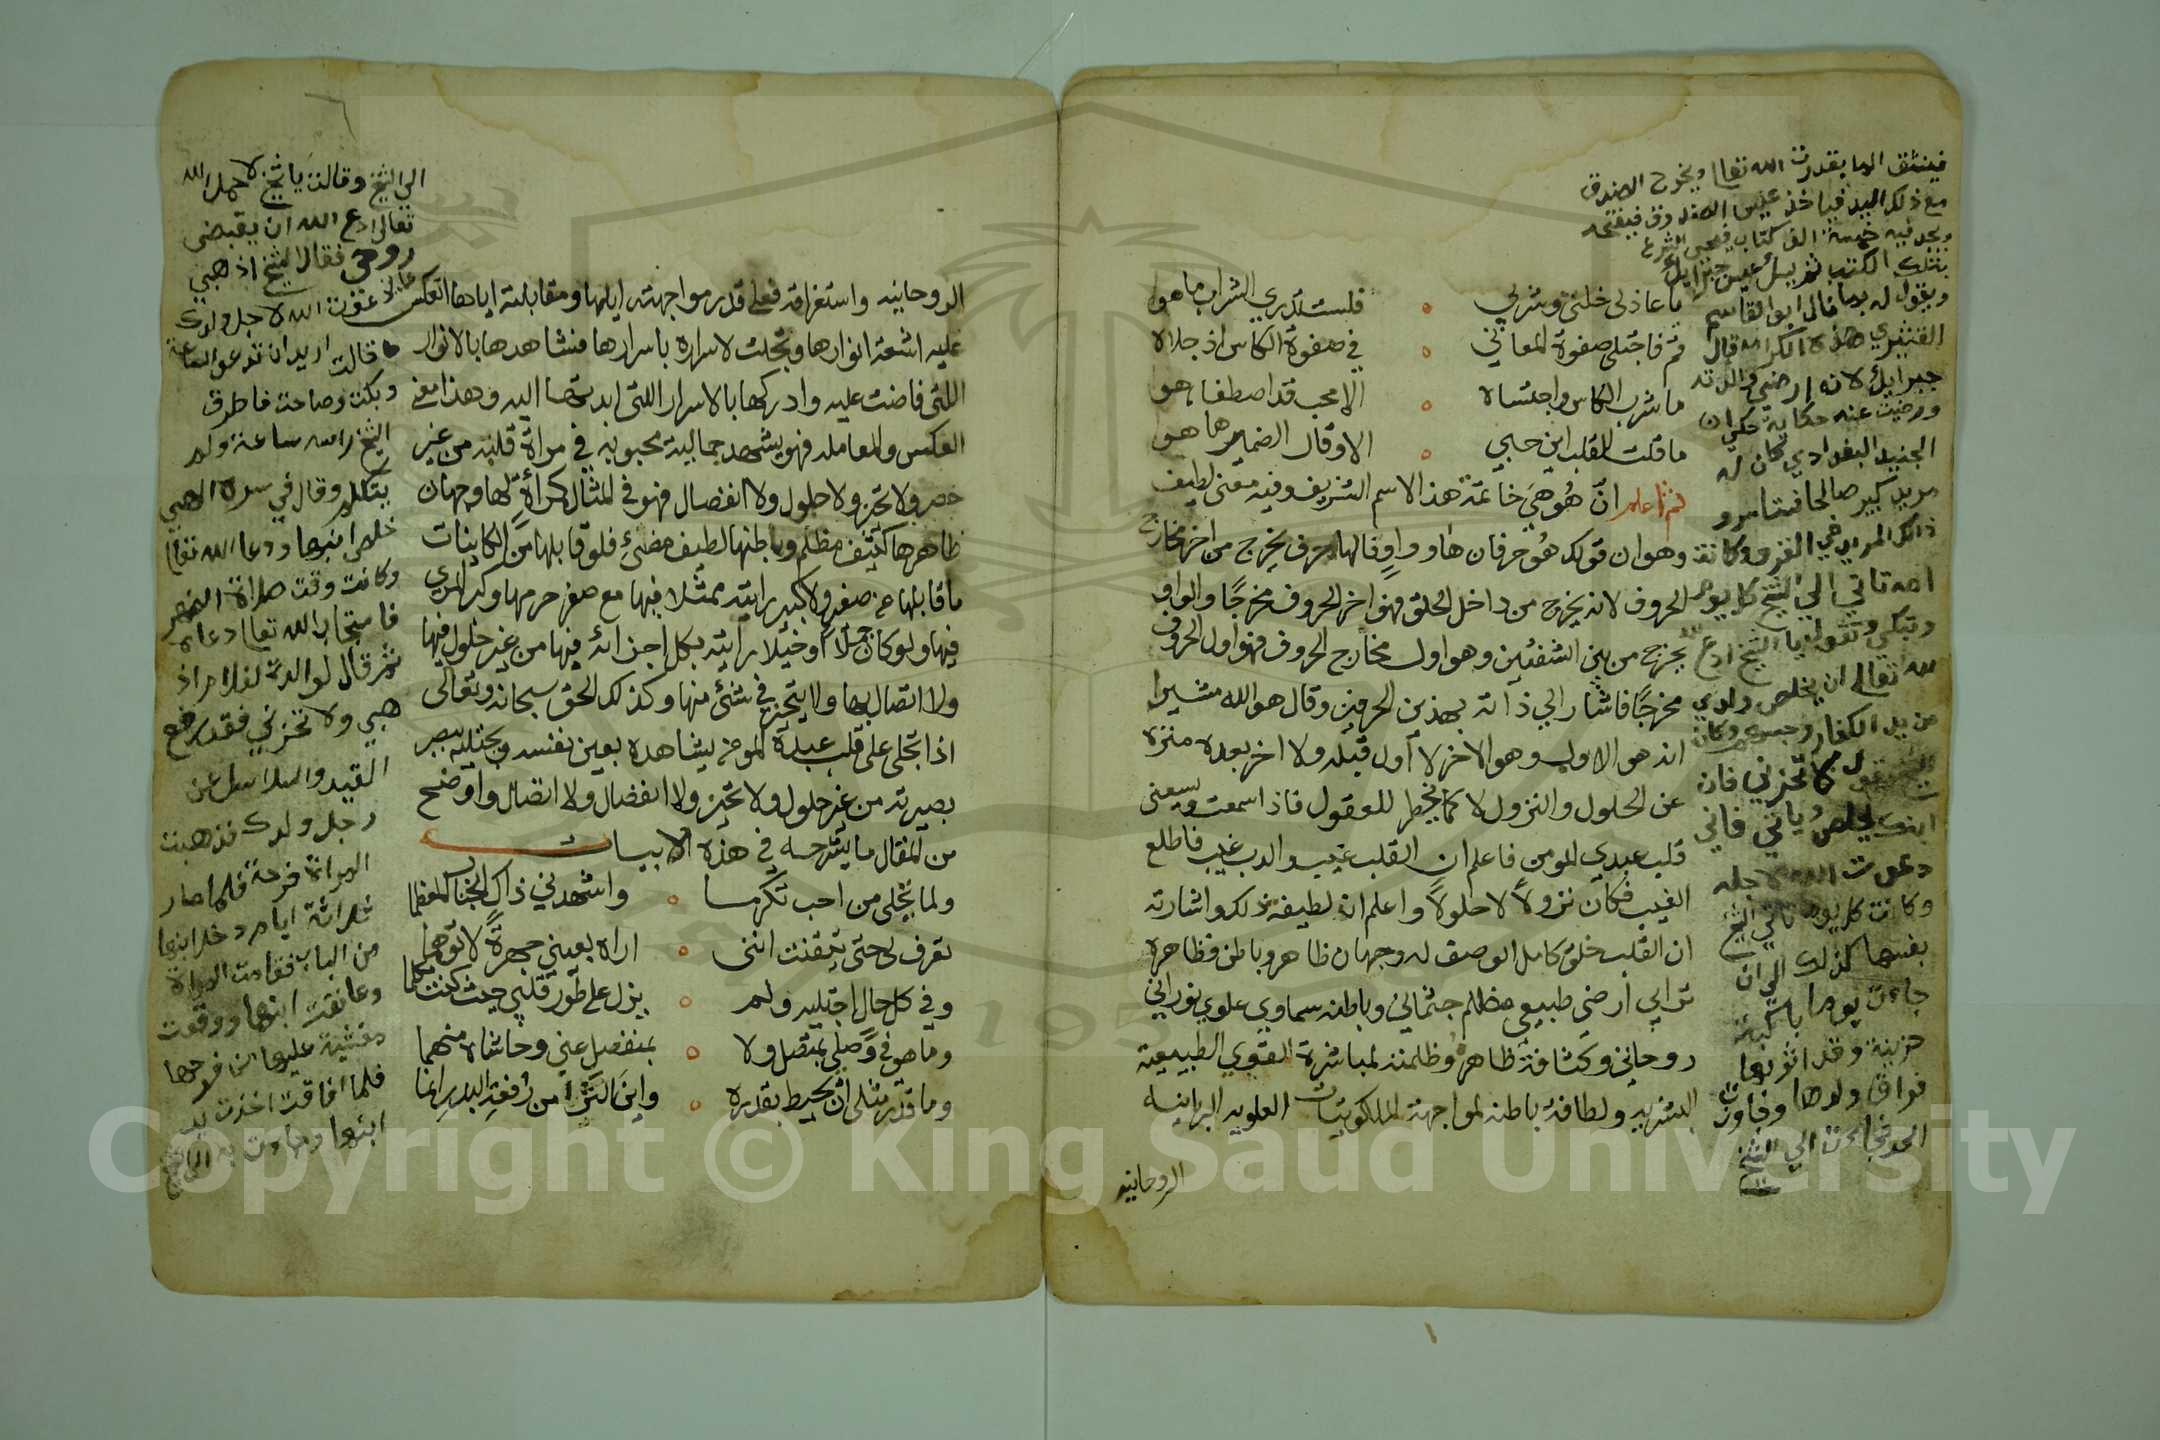 يا عاذلي خلني وشربي ه فلست تدري الشراب ما هوا
قم فاجتلي صفوة المعاني ه في صفوة الكاس اذ جلاه
ما شرب الكاس واجتساه ه الا محب قد اصطفا هوا
ما قلت للقلب اين حبي ه الا وقال الضمير ها هوا
ثم اعلم ان هو هي خاتمة هذا الاسم الشريف وفيه معنى لطيف
وهو ان قولك هو حرفان ها وواو فالها حرف يخرج من اخر مخارج
الحروف لانه يخرج من داخل الحلق فهو اخر الحروف مخرجا والواو
يخرج من بين الشفتين وهو اول مخارج الحروف فهو اول الحروف
مخرجا فاشار الي ذاته بهذين الحرفين وقال هو الله مشيرا
انه هو الاول وهو الاخر لا اول قبله ولا اخر بعده منزه
عن الحلول والنزول لا كما يخطر للعقول فاذا سمعت ويسعني
قلب عبدي المومن فاعلم ان القلب غيب والرب غيب فاطلع
الغيب فكان نزولا لا حلولا واعلم ان لطيفة ذلك واشارته
ان القلب خلق كامل الوصف له وجهان ظاهر وباطن فظاهره
ترابي ارضي طبيعي مظلم جثماني وباطنه سماوي علوي نوراني
روحاني وكثافة ظاهره وظلمته لمباشرة القوي الطبيعية
البشريه ولطافة باطنه لمواجهة الملكوتيات العلويه البرانيه
الروحانيه
فينشق الما بقدرت الله تعالى ويخرج الصندوق
مع ذلك اليد فياخذ عيسى الصندوق فيفتحه
ويجد فيه خمسة الف كتاب فيحيي الشرع
بتلك الكتب ثم يسئل عيسى جبرايل
ويقول له بما نال ابو القاسم
القشيري هذه الكرامه قال
جبرايل لانه ارضي والدته
ورضيت عنه حكاية حكي ان
الجنيد البغدادي كان له
مريد كبير صالحا فتاسرو
ذالك المريد في الغزو وكانت
امه تاتي الي الشيخ كل يوم
وتبكي وتقول يا الشيخ ادع الله
تعالى ان يخلص ولدي
من يد الكفار وحبسهم وكان
الشيخ يقول لها لا تحزني فان
ابنك يخلص وياتي فاني
دعوت الله لاجله
وكانت كل يوم تاتي الشيخ
بفسها كذلك الى ان
جاءت يوما باكية
حزينة وقد اثر بها
فراق ولدها وجاوزت
الحد فجاءت الي الشيخ
الروحانيه واستغراقه فعلي قدر مواجهته اياها ومقابلته اياها انعكس
عليه اشعة انوارها وتجلت لاسراره باسرارها فشاهدها بالانوار
اللتي فاضت عليه وادركها بالاسرار اللتي ابدتها اليه وهذا معنى
العكس والمعامله فهو يشهد جمالية محبوبه في مراة قلبه من غير
حصر ولا تحيز ولا حلول ولا انفصال فهو في المثال كمراة لها وجهان
ظاهرها كثيف مظلم وباطنها لطيف مضئ فلو قابلها من الكاينات
ما قابلها من صغير ولا كبير رايته ممثلا فيها مع صغر جرمها وكبر المري
فيها ولو كان جملا او خيلا رايته بكل اجزائه فيها من غير حلول فيها
ولا اتصال بها ولا يتحيز في شئ منها وكذلك الحق سبحانه وتعالى
اذا تجلى على قلب عبده المومن يشاهده بعين نفسه ويجتليه ببصر
بصيرته من غير حلول ولا تحيز ولا انفصال ولا اتصال واوضح
من المقال ما يشرحه في هذه الابيات
ولما تجلى من احب تكرما ه واشهدني ذاك الجناب المعظما
تعرف لي حتى تيقنت انني ه اراه بعيني جهرة لا توهما
وفي كل حال اجتليه ولم ه يزل على طور قلبي حيث كنت مكلما
وما هو في وصلي بمتصل ولا ه بمنفصل عني وحاشاه منهما
وما قدر مثلي ان يحيط بقدره ه واين الثرى من رفعة البدر انما
الي الشيخ وقالت يا شيخ لا حملا الله
تعالى ادع الله ان يقبضى
روحي فقال الشيخ اذهبي
دعوت الله لاجل ولدك
قالت اريد ان تدعو الساعة
وبكت وصاحت فاطرق
الشيخ راسه ساعة ولم
يتكلم وقال في سره الهي
خلص ابنها ودعا الله تعالى
وكانت وقت صلاة الظهر
فاستجاب الله تعالى دعاه
ثم قال لوالدة الغلام اذ
هبي ولا تحزني فقد رفع
القيد والسلاسل عن
رجل ولدك فذهبت
المراة فرحة فلما صار
ثلاثة ايام دخل ابنها
من الباب فقامت المراة
وعانقت ابنها ووقعت
مغشية عليها من فرحها
فلما افاقت اخذت بيد
ابنها وجاءت به الي الشيخ